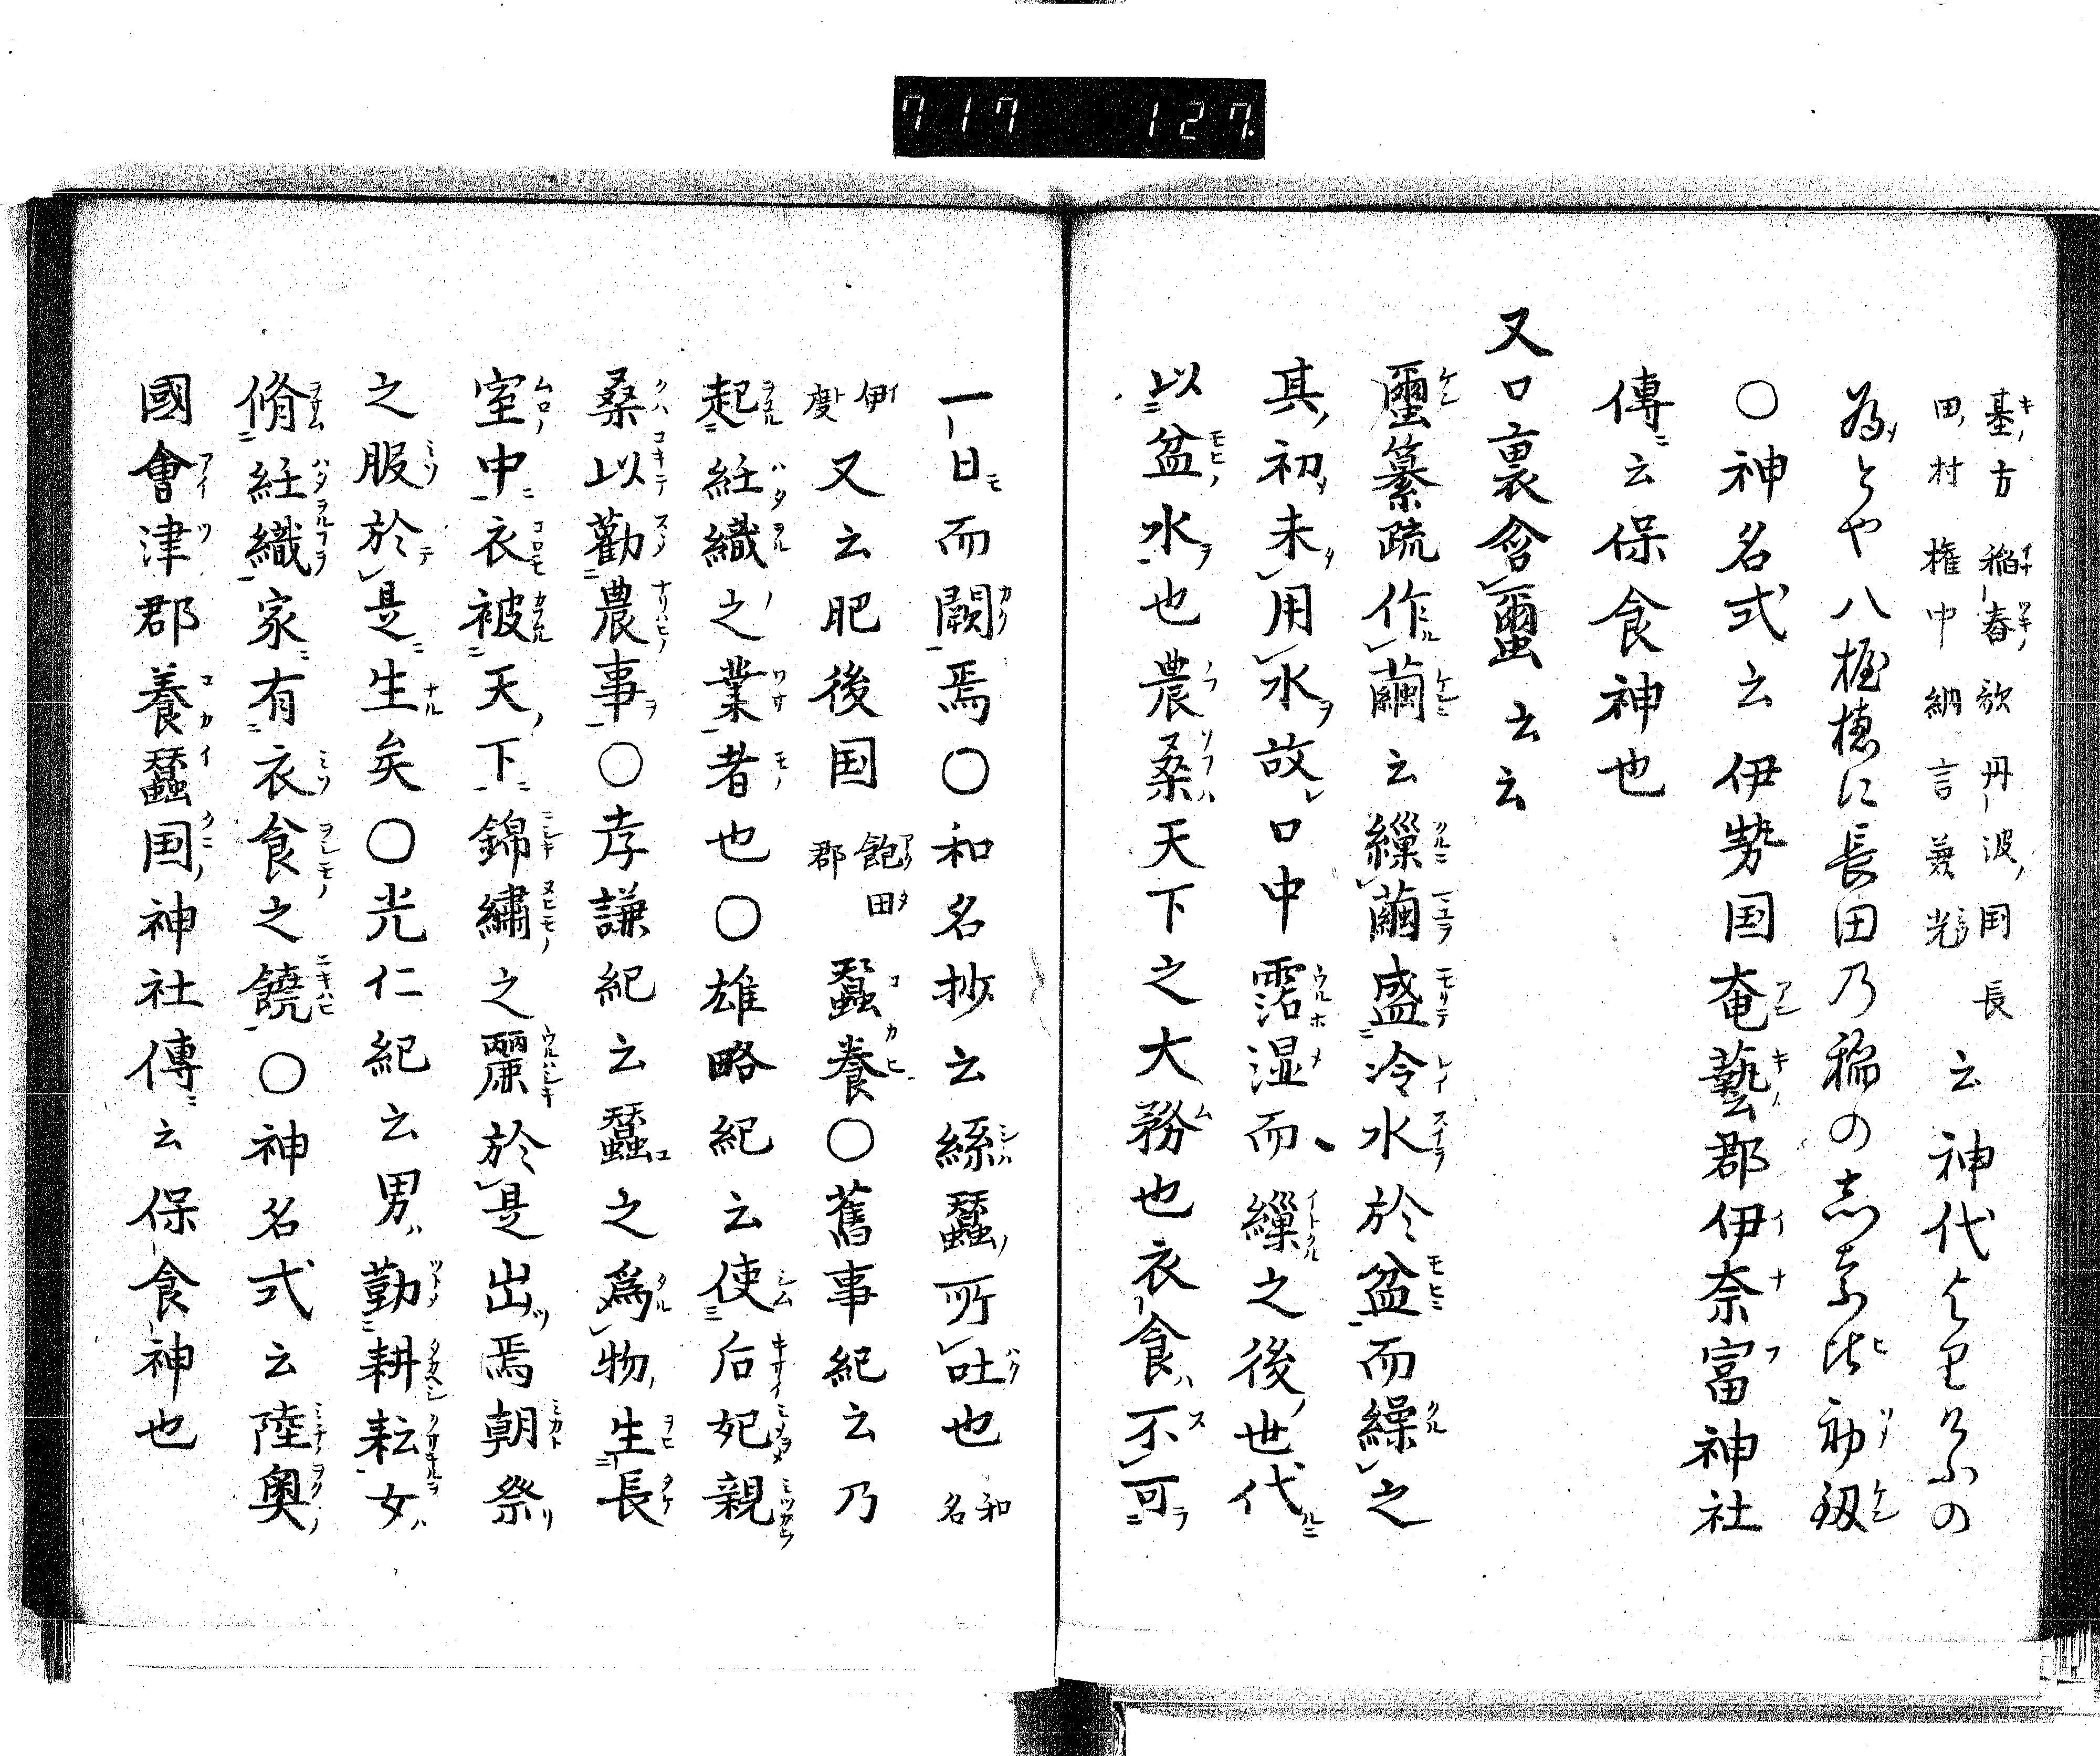 717 127.
基方 稲舂歌 丹波国長
田村 権中納言兼光 云神代よりけふの
為とや八握穂に長田乃稲の志奈比初釼
○神名式云伊勢国奄藝郡伊奈富神社
傳云保食神也
又口裏含蠒云云
蠒纂疏作繭云繅繭盛冷水於盆而繰之
其初未用水故口中霑湿而繅之後世代
以盆水也農桑天下之大務也衣食不可
一日而闕焉○和名抄云絲蠶所吐也 和名
伊度 又云肥後国 飽田郡 蠶養○舊事紀云乃
起紝織之業者也○雄略紀云使后妃親
桑以勸農事○孝謙紀云蠶之爲物生長
室中衣被天下錦繡之麗於是出焉朝祭
之服於是生矣○光仁紀云男勤耕耘女
脩紝織家有衣食之饒○神名式云陸奧
國會津郡養蠶国神社傳云保食神也